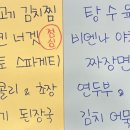 고기 김치찜
킨 너겟 점심
토 (파게티)
콜리 & 초장
기 된장국
탕수육
비엔나 야
짜장면
연두부 &
김치 어묵